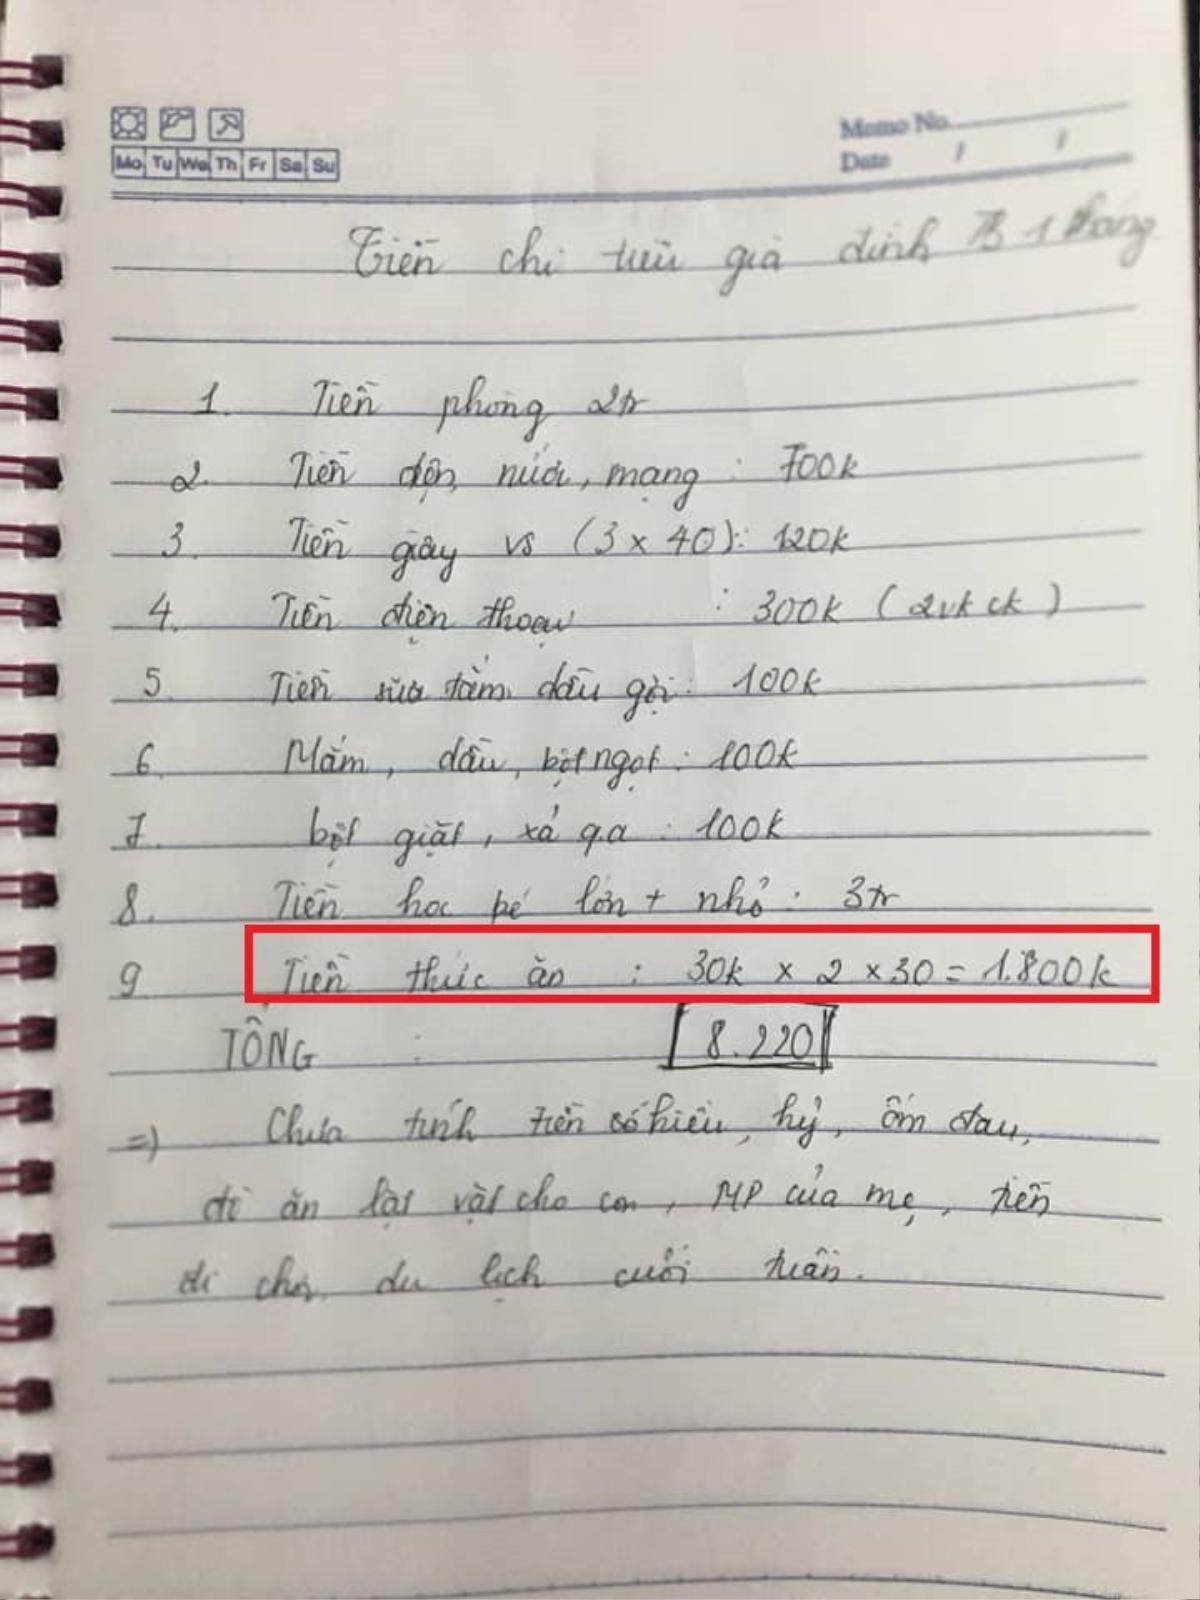 Mo Tu We Th Fr Sa Su
Memo No.
Date / /
Tiền chi tiêu gia đình TB 1 tháng
1. Tiền phòng 2tr
2. Tiền điện, nước, mạng : 700k
3. Tiền giấy vs (3 x 40): 120k
4. Tiền điện thoại : 300k (2vk ck)
5. Tiền sữa tắm, dầu gội : 100k
6. Mắm, dầu, bột ngọt : 100k
7. bột giặt, xả q.a : 100k
8. Tiền học bé lớn + nhỏ : 3tr
9 Tiền thức ăn : 30k x 2 x 30 = 1.800k
TỔNG : 8.220
=) Chưa tính tiền số hiếu, hỷ, ốm đau,
đi ăn lặt vặt cho con, MP của mẹ, tiền
đi chơi, du lịch cuối tuần.